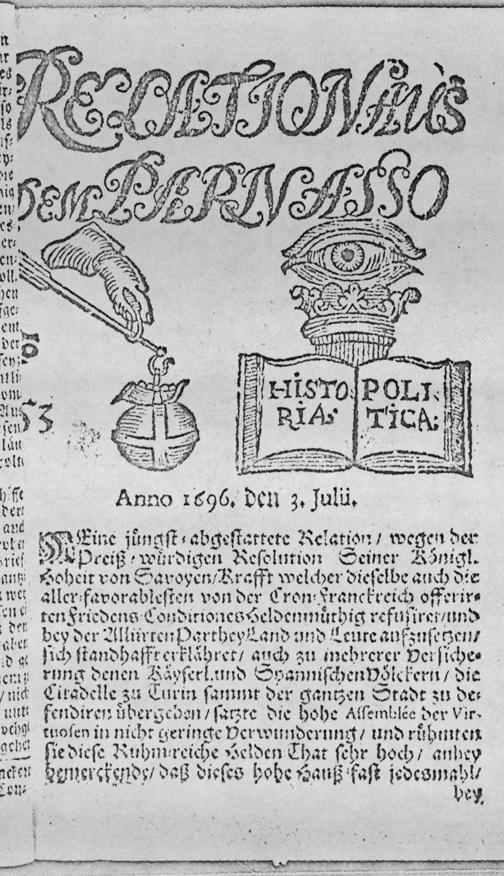 RELATION Auß
DEM PARNASSO
HISTO POLI
RIA: TICA:
53
Anno 1696. den 3. Julii.
MEine jüngst-abgestattete Relation/ wegen der
Preiß-würdigen Resolution Seiner Königl.
Hoheit von Savoyen/Krafft welcher dieselbe auch die
aller-favorablesten von der Cron-Franckreich offerir-
ten Friedens-Conditiones Heldenmüthig refusiret/und
bey der Alliirten Parthey Land und Leute aufzusetzen/
sich standhafft erklähret/ auch zu mehrerer Versiche-
rung denen Käyserl.und Spannischen Völckern/ die
Citadelle zu Turin sammt der gantzen Stadt zu de-
fendiren übergeben/ satzte die hohe Assemblée der Vir-
tuosen in nicht geringe Verwunderung/ und rühmten
sie diese Ruhm-reiche Helden That sehr hoch/ anbey
bemerckende/ daß dieses hohe Hauß fast jedesmahl/
bey